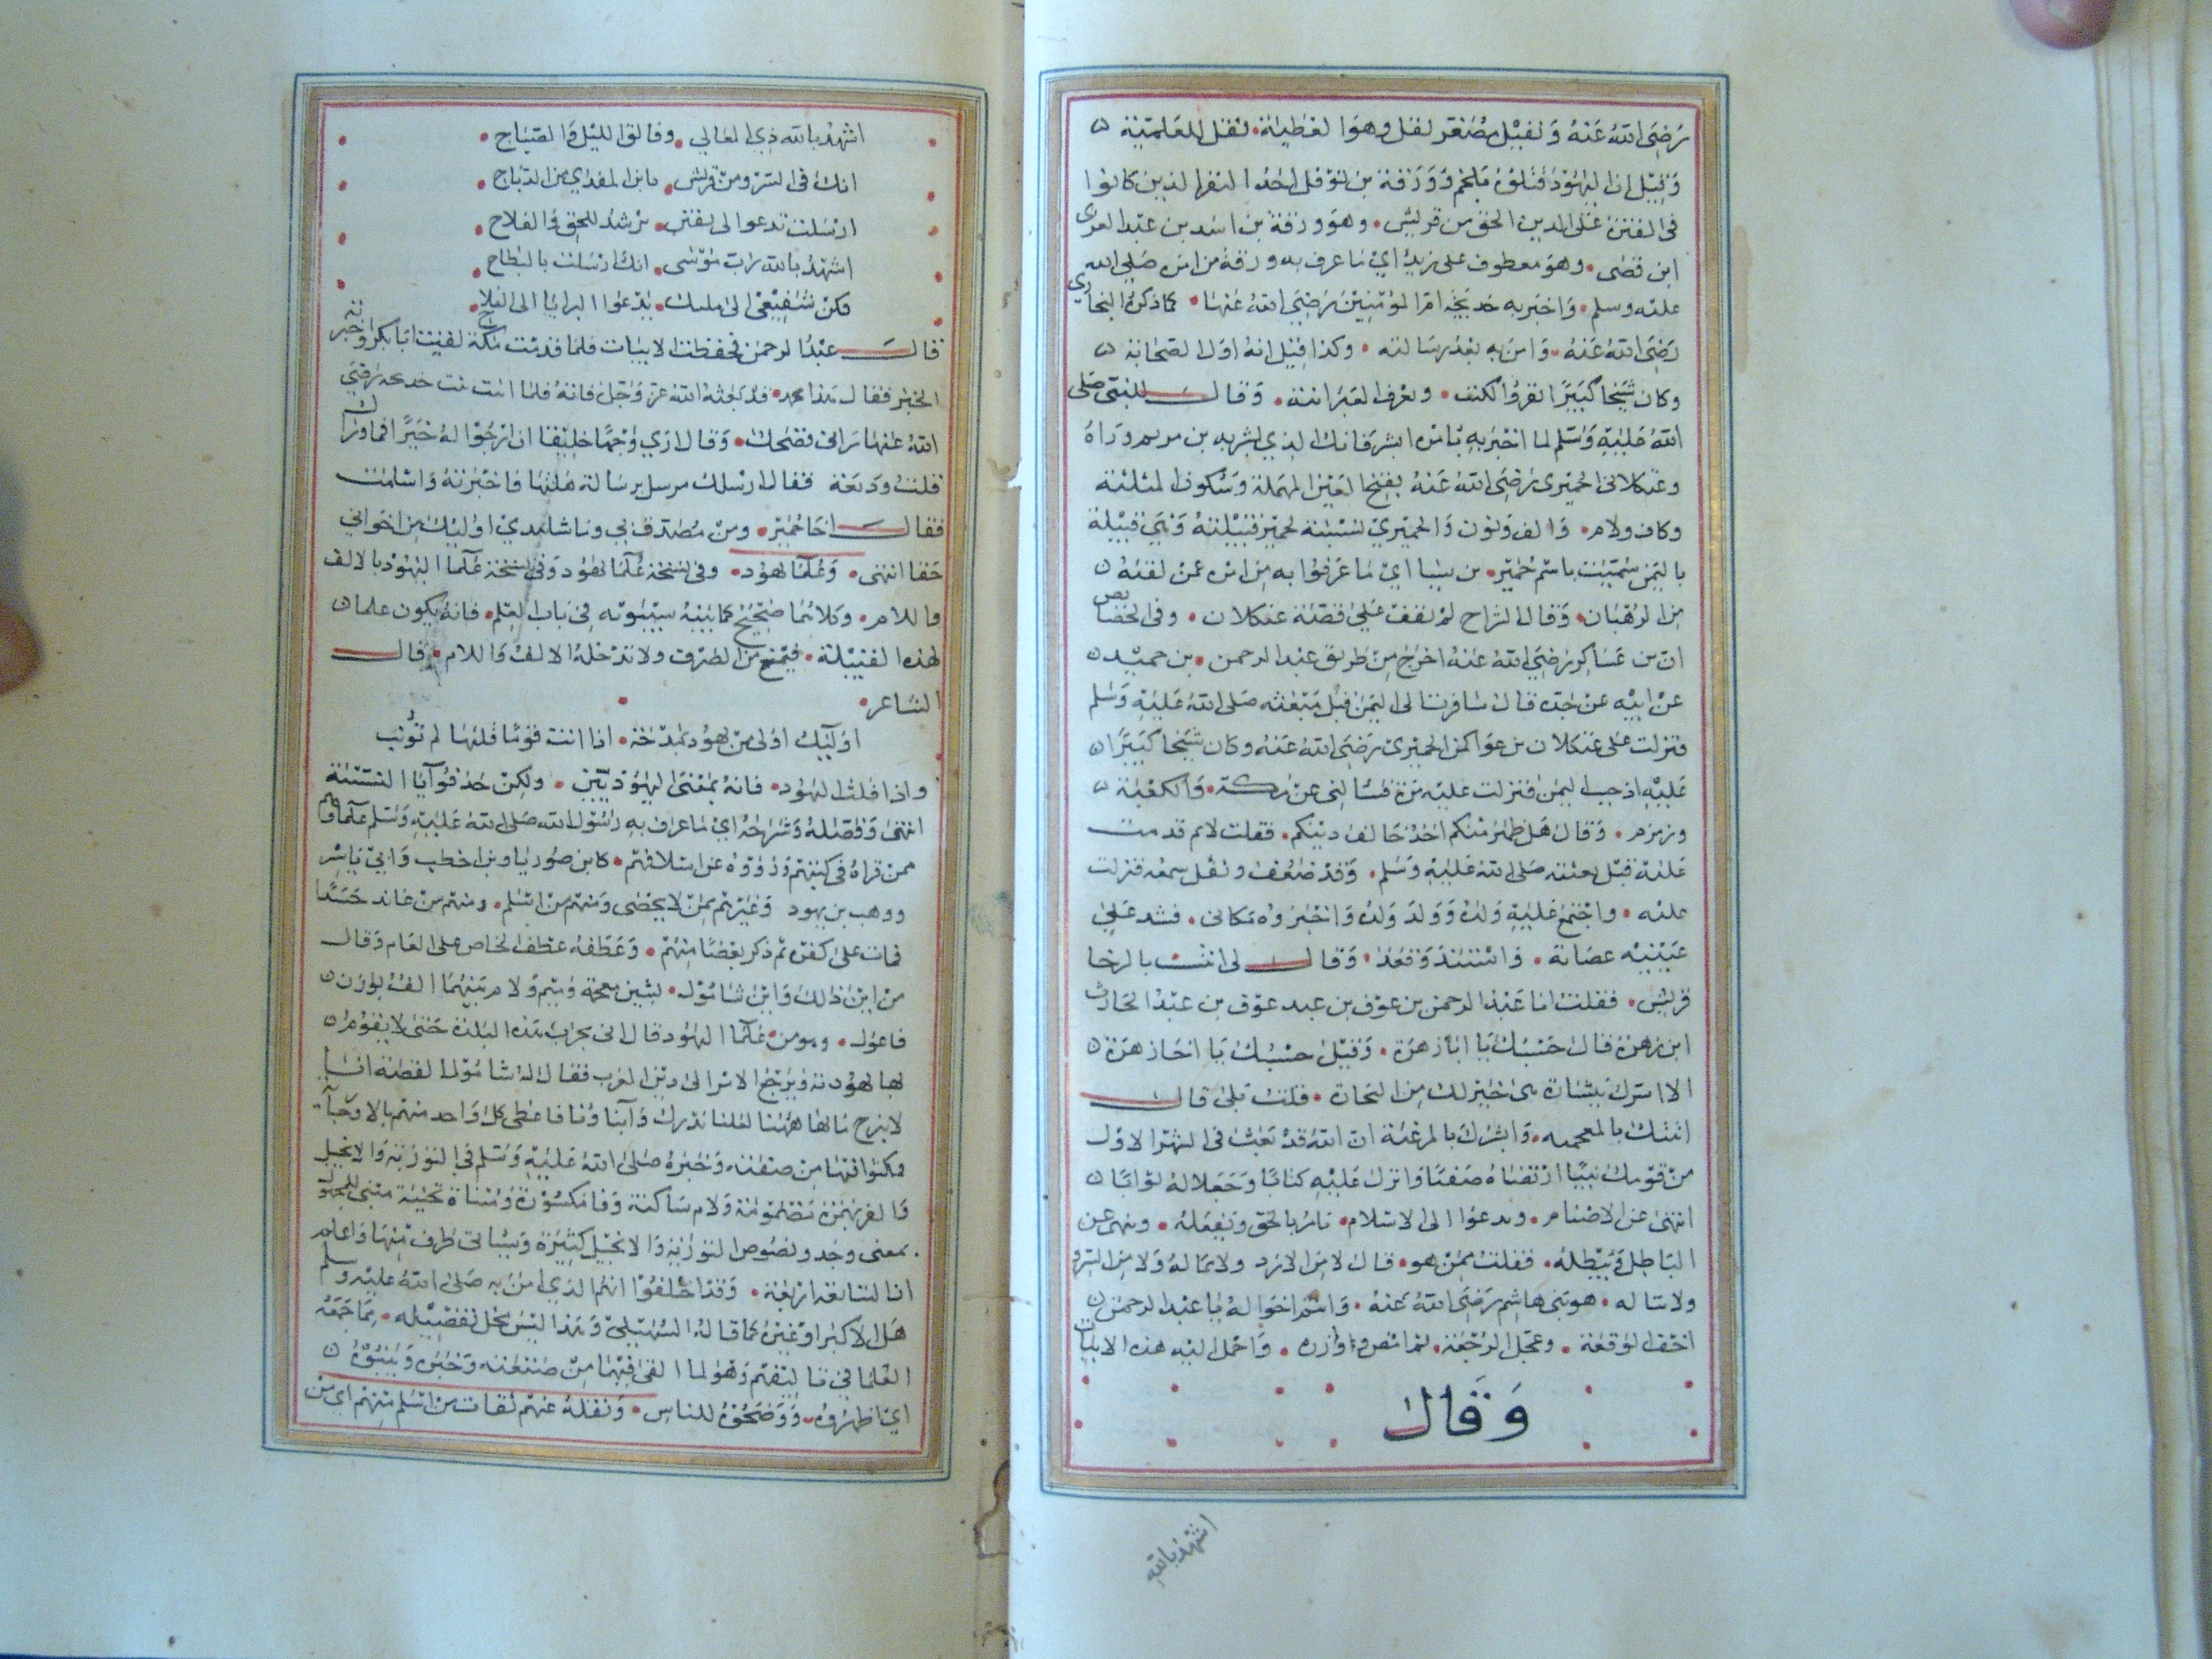 رَضِيَ اللهُ عَنْهُ وَنفيْل مصَنعر لفل وهوَا لعَطِيَّة لنفل للعَلمّيَة
وَقيْل انَ اليَهُوْدَ قتلوْهُ وَوَرَقة بن نَوْفل احدُ النفر الذين كانوا
فى الفترة عَلى الدين الحَق من قريش وهوَ ورقة بن اسد بن عبْد العزى
ابن قصَى وهوَ معطوف على زيدٍ ايْ مَا عرف به ورقة من امره صَلى الله
عليْه وسلم وَاخبَر به خديْجَة امّ المؤمنِيْنَ رَضِيَ اللهُ عَنْهَا كما ذكرهُ البخاري
رَضِيَ اللهُ عَنْهُ وَامن به بَعْد رسَالته وكذا قيْل انهُ اوّل الصّحَابة
وكان شيْخا كبيْرًا يقرؤا الكتب ويعرف العبرانية وَقالَ للنبّي صَلى
اللهُ عَليْهِ وَسَلم لما اخبَر بهِ بامره ابشر فانك الذي بشر به بن مريم وَرَاهُ
وعَثكلان الحميرى رَضِيَ اللهُ عَنْهُ بفتح العَيْن المهمَلة وسُكون المثلثة
وكاف ولام وَالف وَنون وَالحمَيريْ نسْبَة لحميَر قبيْلتهُ وَهي قبيْلة
باليَمن سُمّيَت باسْم حُميَر بن سَبا ايْ مَا عَرفوْا به من امره عَنْ لفتهُ
مِن الرُهْبَان وَقال الشراح لمْ نقف عَلى قصّة عثكلان وفى الخصَايص
انّ بن عَسَاكر رَضِيَ اللهُ عَنهُ اخرَج مِنْ طريق عَبْد الرحمن بن حميْد
عَنْ ابيْه عَنْ جَدّه قال سَافرْتُ الى اليَمَن قبْل مَبْعَثه صَلى اللهُ عَليْهِ وَسَلم
فنزلت عَلى عَثكلان بن عوَاكن الحميْريْ رَضِيَ اللهُ عَنهُ وكان شيْخا كبيْرًا
فنزلت عليْه مَرّة فسَالنى عن مكة وَالكعْبَة
وزمزم وَقال هَل ظهر منكم احَدٌ خَالف ديْنكم فقلت لا ثم قدمت
عَليْه قبْل بعثته صَلى اللهُ عَليْهِ وَسَلم وَقدْ ضَعُف وثقل سمعه فنزلت
عليْه وَاجْتمَعَ عَليْهِ وَلدُهُ وَوَلدَ وَلدُهُ وَاخبَرُوهُ بمكانى فشد عَلى
عَيْنيْه عصَابة وَاسْتنَدَ وَقعَدَ وَقالَ لى انتسب يا اخا
قريْش فقلت انا عَبْدُ الرحمن بن عوْف بن عبد عوْف بن عبْدُ الحَارث
ابن زهرة قال حَسْبُكَ يَا اخا زهرَة وَقيْل حسْبُك يَا اخَا زهرَة
الا ابشرك ببشَارة هىَ خَيْر لك مِن التجَارة قلت بَلىْ قالَ
انبئك بالمعجبه وَابشرُك بالمرغبة انّ اللهَ قدْ بَعَث فى الشهْر الاوّل
منْ قوْمك نبيًّا ارْتضَاهُ صَفيًّا وَانزل عَليْهِ كتابًا وَجَعَل لهُ ثوَابًا
ينهىَ عَن الاصْنام ويَدعوْا الى الاسلام يامُرُ بالحَق وَيفعَلهُ وينهى عن
البَاطل وَيُبْطلهُ فقلت ممّن هو قال لا مِن الازد ولا ثمَالهُ وَلا مِن السرو
ولا تباله هو من بني هاشم رَضِيَ اللهُ عَنْهُ وَانتم اخوَالهُ يا عبْد الرحمن
اخف الوَقعَة وعجل الرجْعَة ثم امض وازره وَاحْمل اليْه هذه الابيات
وَقالَ
اشهَدُ بالله
اشهَدُ بالله ذي المعَالي وفالق الليْل وَالصّبَاح
انك فى السرو منْ قريْش يا ابن المفدي مِن الذبَاح
ارْسلت تدعوا الى يقين ترشدُ للحَق وَالفلاح
اشهَدُ بالله رَبّ مُوْسَى انك ارْسلت بالبطاح
فكن شَفيْعىْ الىْ مليك يَدْعوا البرايا الى الفلاح
قالَ عبْدُ الرحمن فحَفظت الابيَات فلما قدمْت مكة لقيْت ابَا بكر واخبرته
الخبَر فقال هذا محمد قد بَعَثهُ اللهُ عز وَجَل فاتهُ فلما اتيت بيْت خديجه رَضِيَ
اللهُ عَنْهَا رَانىْ فضحِك وَقال ارَي وَجْهًا خليْقا انْ ارْجُوْا لهُ خَيْرًا فما وراك
قلت وَديعَة فقال ارسلك مرسل برسَالة هَاتهَا فاخبَرْتهُ وَاسْلمت
فقالَ اخَا حُميَر ومنْ مُصَدق بي وما شاهَديْ اوْليْك مِن اخوَاني
حَقا انتهَى وَعُلمَا يَهُود وَفى نسخة عُلمَا اليَهُوْد بالالف
واللام وَكلاهُمَا صَحِيْح كما بَينهُ سيْبَوَيْه فِيْ باب العِلم فانهُ يكون علما
لهذه القبيْلة فيُمْنع مِن الصّرف ولا تدْخلهُ الالفُ وَاللام قالَ
الشاعر
اوْليْك اوْلى منْ يهُوْد بمدْحَة اذا انت يَوْمًا قلتهَا لم تؤنب
واذا قلت اليَهُود فانهُ بمَعْنىَ اليَهُوْديّيْن ولكِنْ حَذفوْا يَا النسْبَة
انتهىَ وَفصّلهُ وَشرَحَهُ ايْ مَا عرف به رَسُوْل الله صَلى اللهُ عَليْهِ وَسَلم علماؤهم
ممنْ قراهُ فى كتبهمْ وَرَوَوْهُ عن اسْلافهمْ كابن صُوريا وبن اخطب وَابيْ يَاسِر
ووهب بن يهود وَغيْرهمْ ممنْ لا يُحْصَى وَمنهمْ منْ اسْلم ومنهمْ منْ عَاند حَسَدًا
فمات على كفره ثم ذكر بَعْضًا منْهُمْ وَعَطَفهُ عَطف الخاص على العَام وَقال
من ابيْن ذلك وَابْن شامُوْل بشيْن معجمة وَميْم وَلام بيْنهُمَا الف بوَزن
فاعُول وهو من عُلما اليَهُود قال انى بحرابُ هذه البَلدة حَتىَ لا يَقوْمُ
بها يهُوْديّة وَيَرْجَعُ الامْر الى ديْن العَرب فقال لهُ شامُوْل القصّة
كل وَاحد منهم بالاوجآ
مكتوْبا فيها منْ صفته وَخَبَرهُ صَلى اللهُ عَليْهِ وَسَلم فى التوْرَية وَالانجيْل
وَالف بهَمزة مَضمُوْمَة وَلام سَاكنة وَفا مَكسُوْرة وَمُثناة تحْتيَة مبْنى للمجهول
بمعنى وجدَ ونصُوص التوْرَية وَالانجيْل كثيْرة وَسيَاتى طرف مِنهَا وَاعلم
انا لتبَابعَة ارْبَعَة وَقد اخْتلفوْا ايهُم الذيْ امَن به صَلى اللهُ عليْه وسلم
هَل الاكبر اوْ غيْرُهُ كما قالهُ السُهَيْليْ وَهذا ليْس محَل تفصيْله ممّا جَمَعَهُ
العُلمَا فيْ تاليْفهمْ وَهوَ لما الفىَ فيْهَا منْ صفته وَخَبَره وَبَيّنُوْهُ
ايْ اظهرُوْهُ وَوَضحُوْهُ للناس وَنقلهُ عنهمْ ثقات من اسْلم منهمْ ايْ منْ